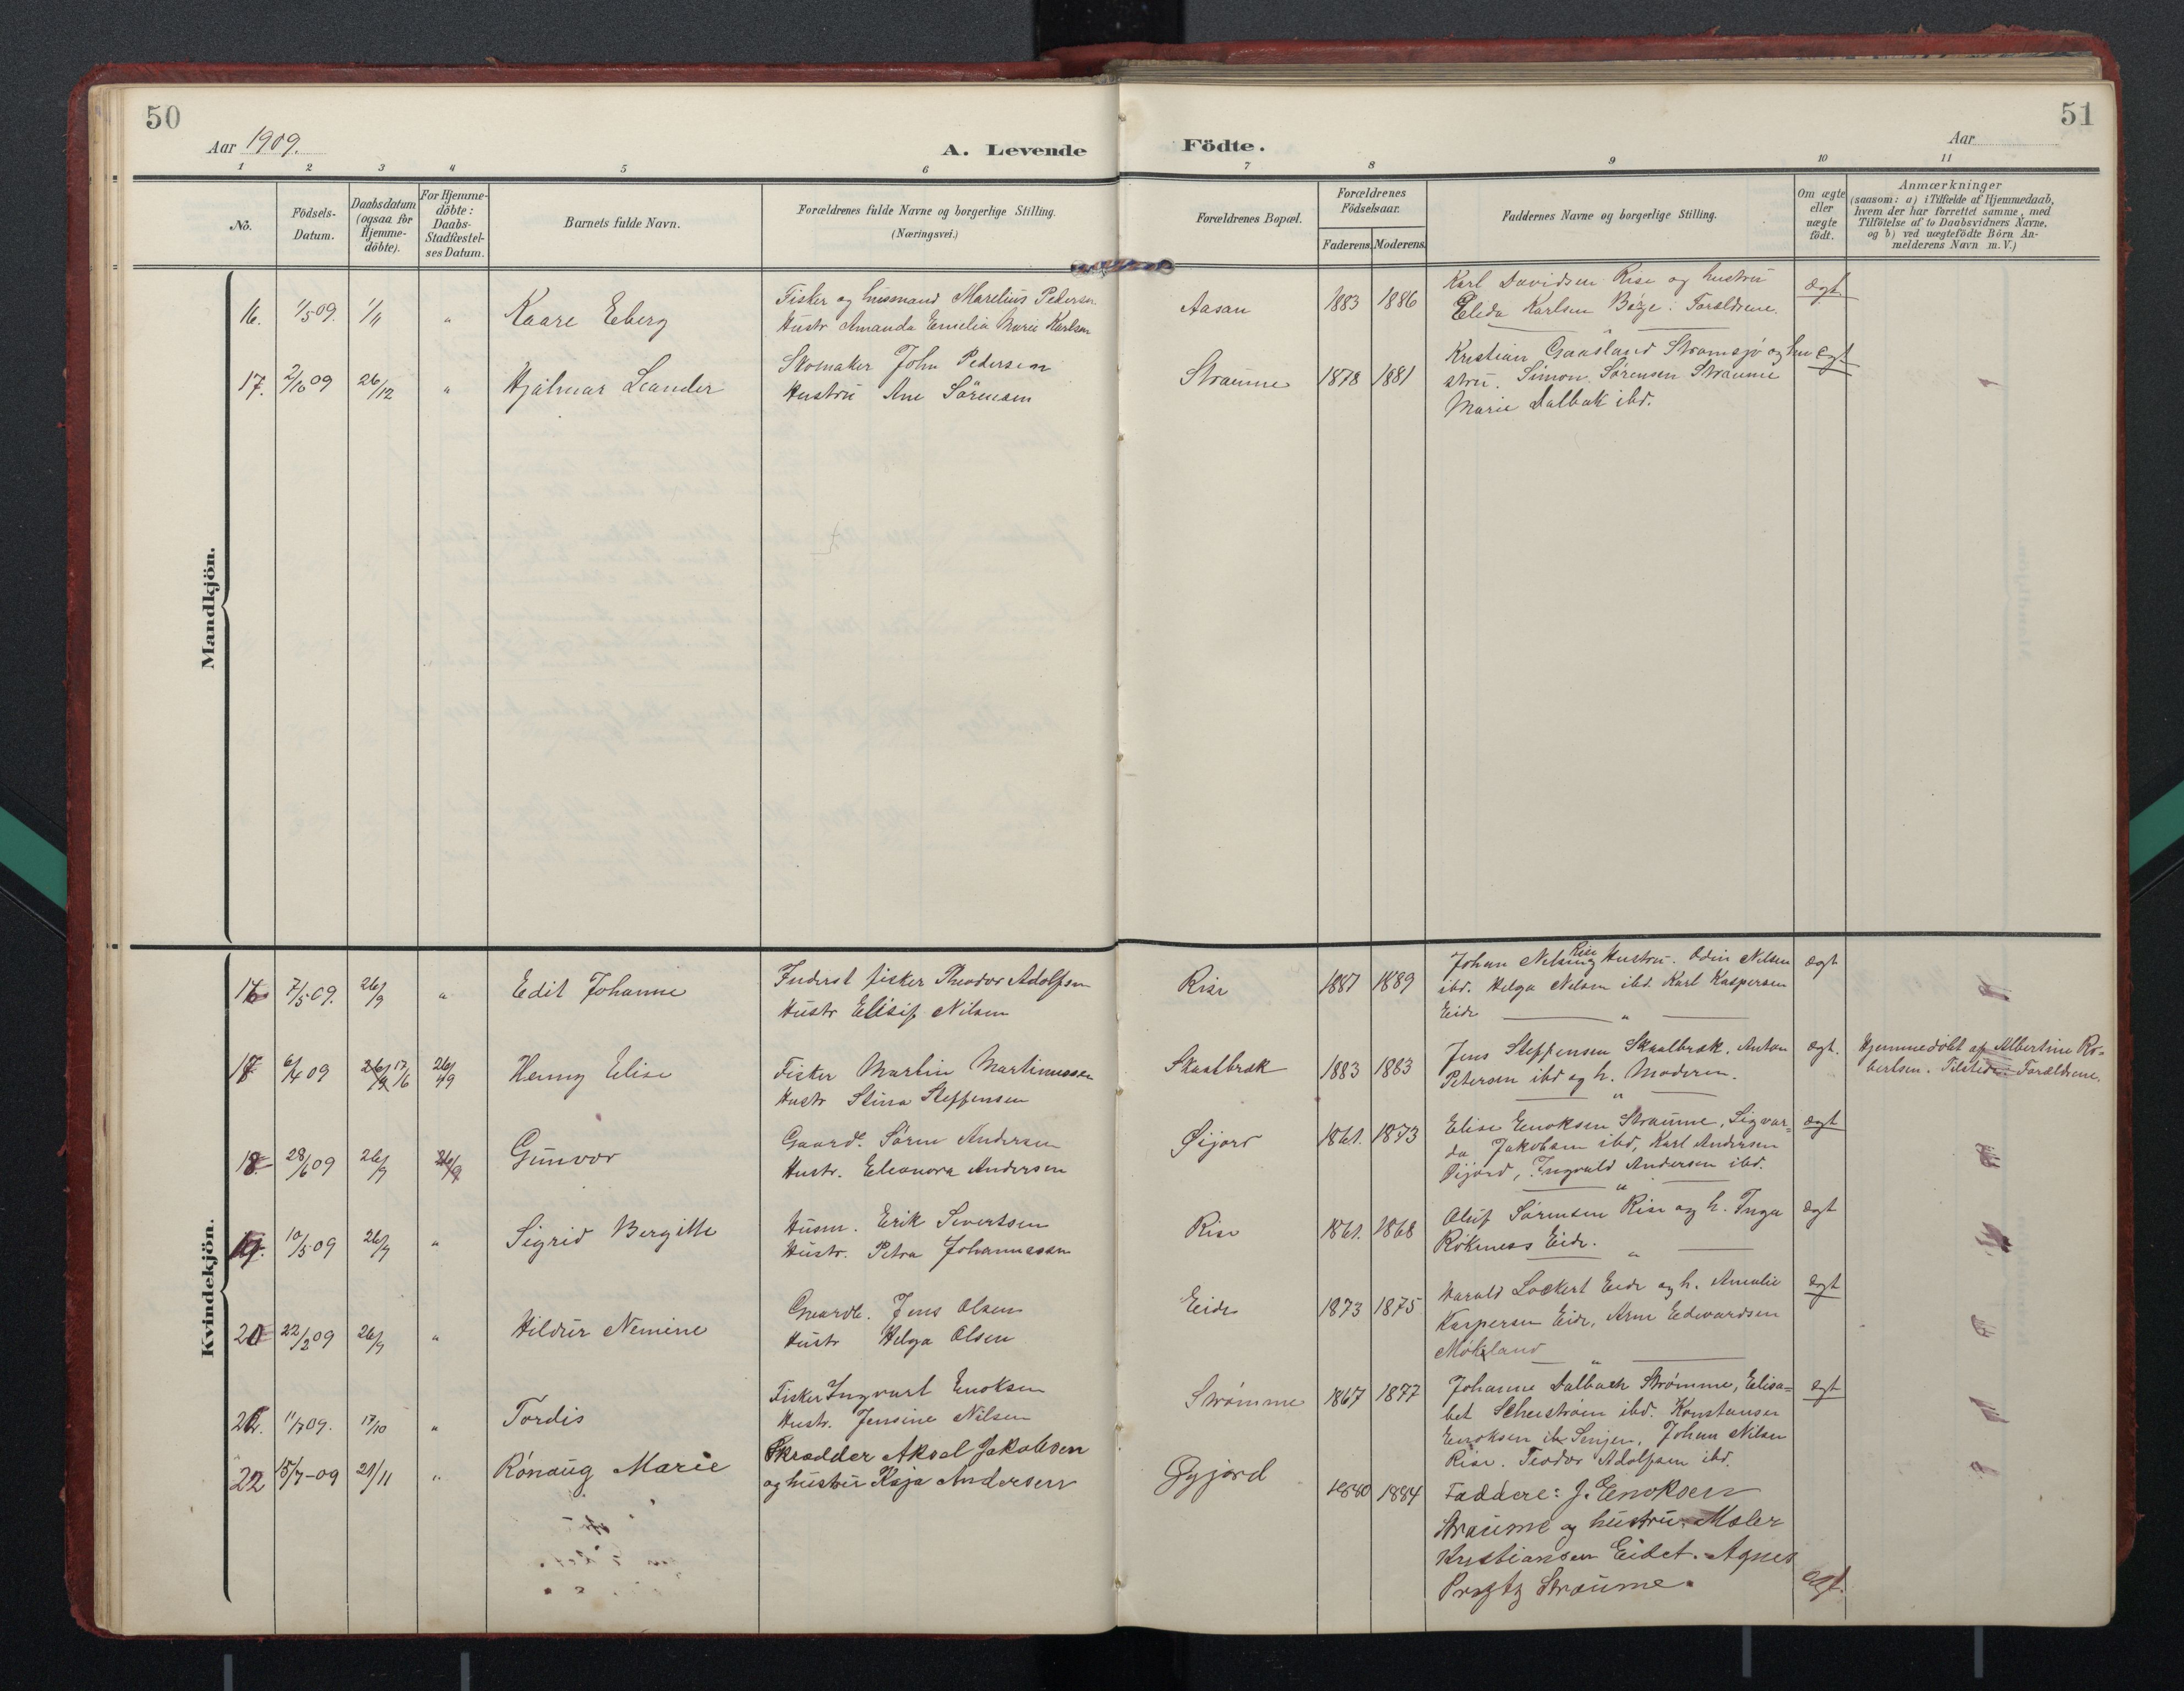 50
Aar 1909.
A. Levende
Födte.
51
Aar
1 2 3 4 5 6 7 8 9 10 11
No.
Födsels-
Datum.
Daabsdatum
(ogsaa for
Hjemme-
döbte).
For Hjemme-
döbte:
Daabs-
Stadfæstel-
ses Datum.
Barnets fulde Navn.
Forældrenes fulde Navne og borgerlige Stilling.
(Næringsvei.)
Forældrenes Bopæl.
Forældrenes
Födselsaar.
Faderens. Moderens.
Faddernes Navne og borgerlige Stilling.
Om ægte
eller
uægte
födt.
Anmærkninger
(saasom: a) i Tilfælde af Hjemmedaab,
hvem der har forrettet samme, med
Tilföielse af to Daabsvidners Navne.
og b) ved uægtefödte Börn An-
melderens Navn m. V.)
Mandkjön.
16. 1/5 09. 1/11 " Kaare Eberg
Fisker og husmand Marelius Pedersen
Hustr Amanda Emelia Marie Karlsen
Aasan 1883 1886
Karl Davidsen Rise og hustru
Elida Karlsen Bøge: Forældrene.
ægt.
17. 2/10 09 26/12 " Hjalmar Leander
Skomaker John Pedersen
Hustru Ane Sörensen
Straume 1878 1881
Kristian Gaasland Stramsjø og hu
stru. Simon Sørensen Straume
Marie Dalbak ibd.
ægt
Kvindekjön.
16 7/5 09. 26/9 " Edit Johanne
Inderst fisker Theodor Adolfsen
Hustr Elisif Nilsen
Rise 1887 1889
Johan Nelsen Rise og Hustru. Odin Nilsen
ibd. Helga Nelsen ibd. Karl Kaspersen
Eide "
ægt
17 6/4 09 17/6 26/9 Henny Elise
Fisker Martin Martinussen
Hustr Stina Steffensen
Skaalbrak 1883 1883
Jens Steffensen Skaalbrak. Anton
Petersen ibd og h. Moderen.
"
ægt.
Hjemmedöbt af Albertine Ro-
bertsen. Tilstede: Forældrene.
18 28/6 09 26/9 Gunvor
Gaardb. Sörn Andersen
Hustr. Eleanora Andersen
Øijord 1861. 1873
Elise Enoksen Straume, Sigvar-
da Jakobsen ibd, Karl Andersen
Øijord, Ingvald Andersen ibd.
"
ægt
19. 10/5 09 26/9 " Sigrid Bergitte
Husm. Erik Sivertsen
Hustr. Petra Johannessen
Rise 1861. 1868
Oluf Sørensen Rise og h. Inga
Röknes Eide.
"
ægt
20 22/2 09 26/9 " Hildur Nemine
Gaardb. Jens Olsen
Hustr Helga Olsen
Eide 1873 1875
Harald Lockert Eide og h. Amalie
Kaspersen Eide, Arne Edvardsen
Mökland
"
ægt
21. 11/7 09. 17/10 " Tordis
Fisker Ingvart Enoksen
Hustr. Jensine Nilsen
Strömme 1867 1877
Johanne Dalbach Strömme, Elisa-
bet Scheiström ibd. Konstanse
Enoksen Senjen, Johan Nilsen
Rise. Teodor Adolfsen ibd.
ægt
22 15/7-09 21/11 " Rónaug Marie
Skrædder Aksel Jakobsen
og hustru Kaja Andersen
Øyjord 1880 1884
Faddere: J. Enoksen
Straume og hustru. Maler
Kristiansen Eidet. Agnes
Straume.
ægt.